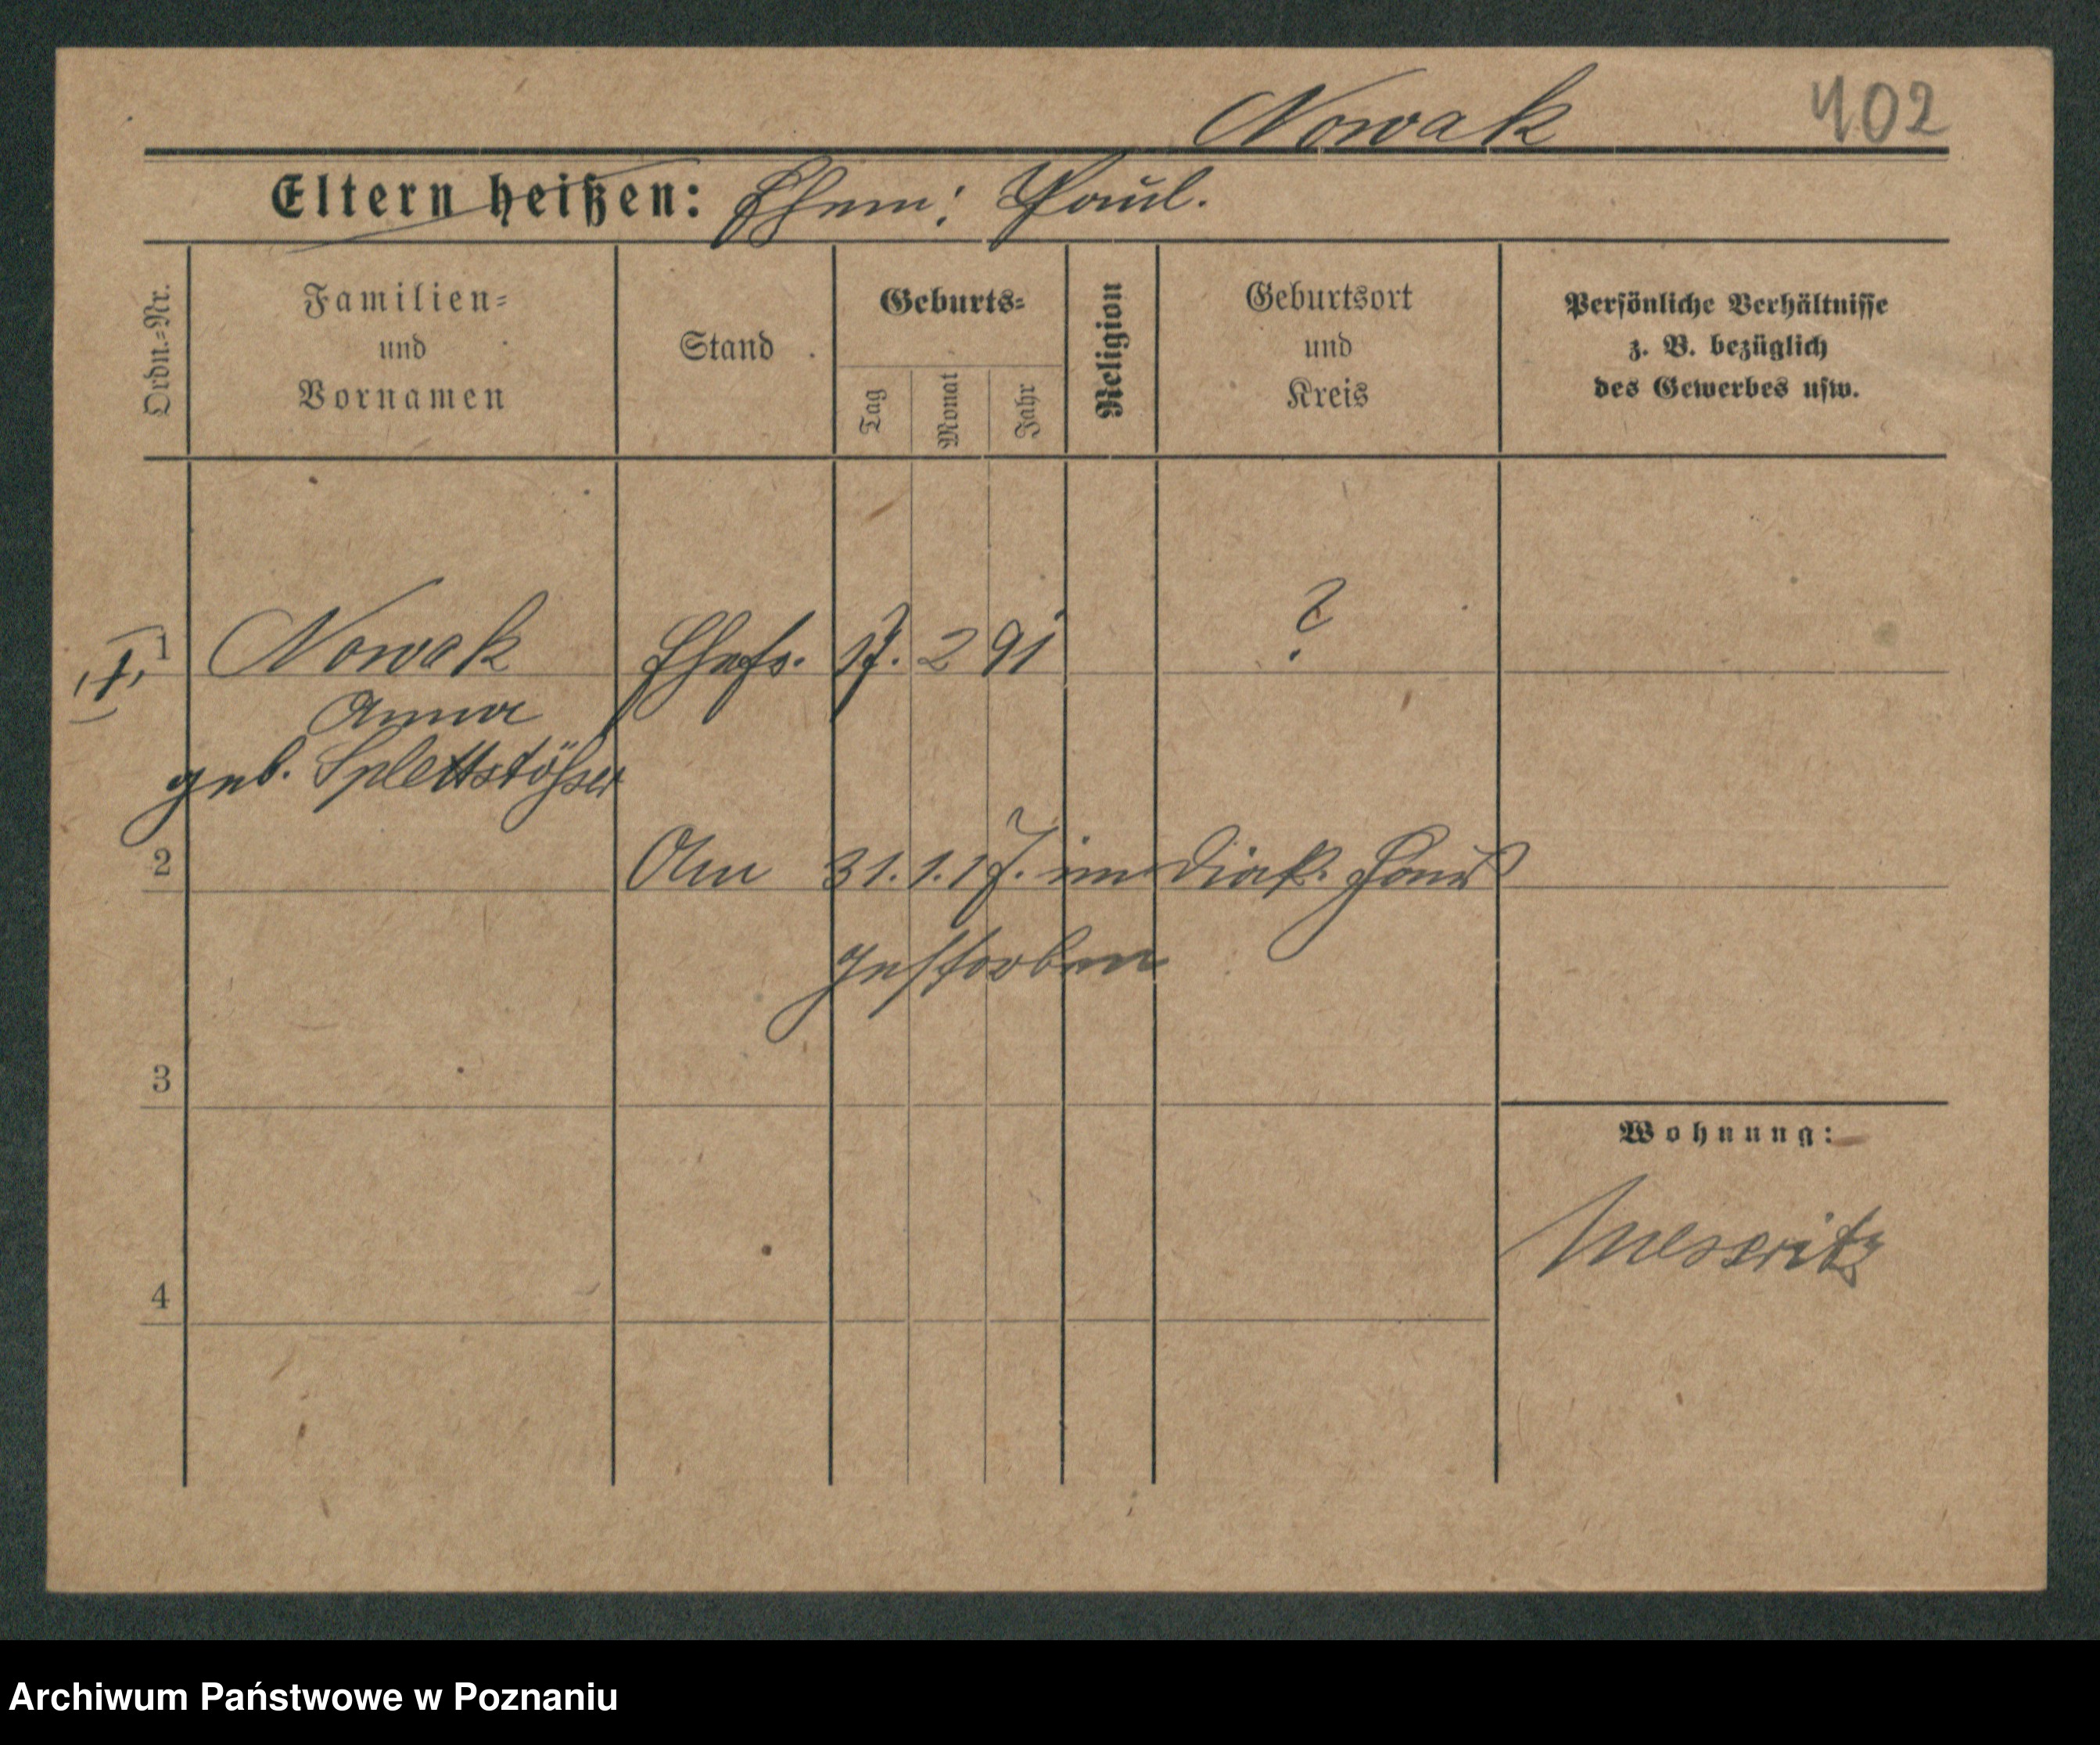 Nowak 402
Eltern heißen: Ehem: Paul.
Ordn.=Nr.
Familien=
und
Vornamen
Stand
Geburts=
Tag
Monat
Jahr
Religion
Geburtsort
und
Kreis
Persönliche Verhältnisse
z. B. bezüglich
des Gewerbes usw.
1 Nowak Ehefr. 17. 2 91 ?
Anna
geb. Splettstößer
2 Am 31.1.17. im Diak. Haus
gestorben
3
Wohnung:
Meseritz
4
Archiwum Państwowe w Poznaniu